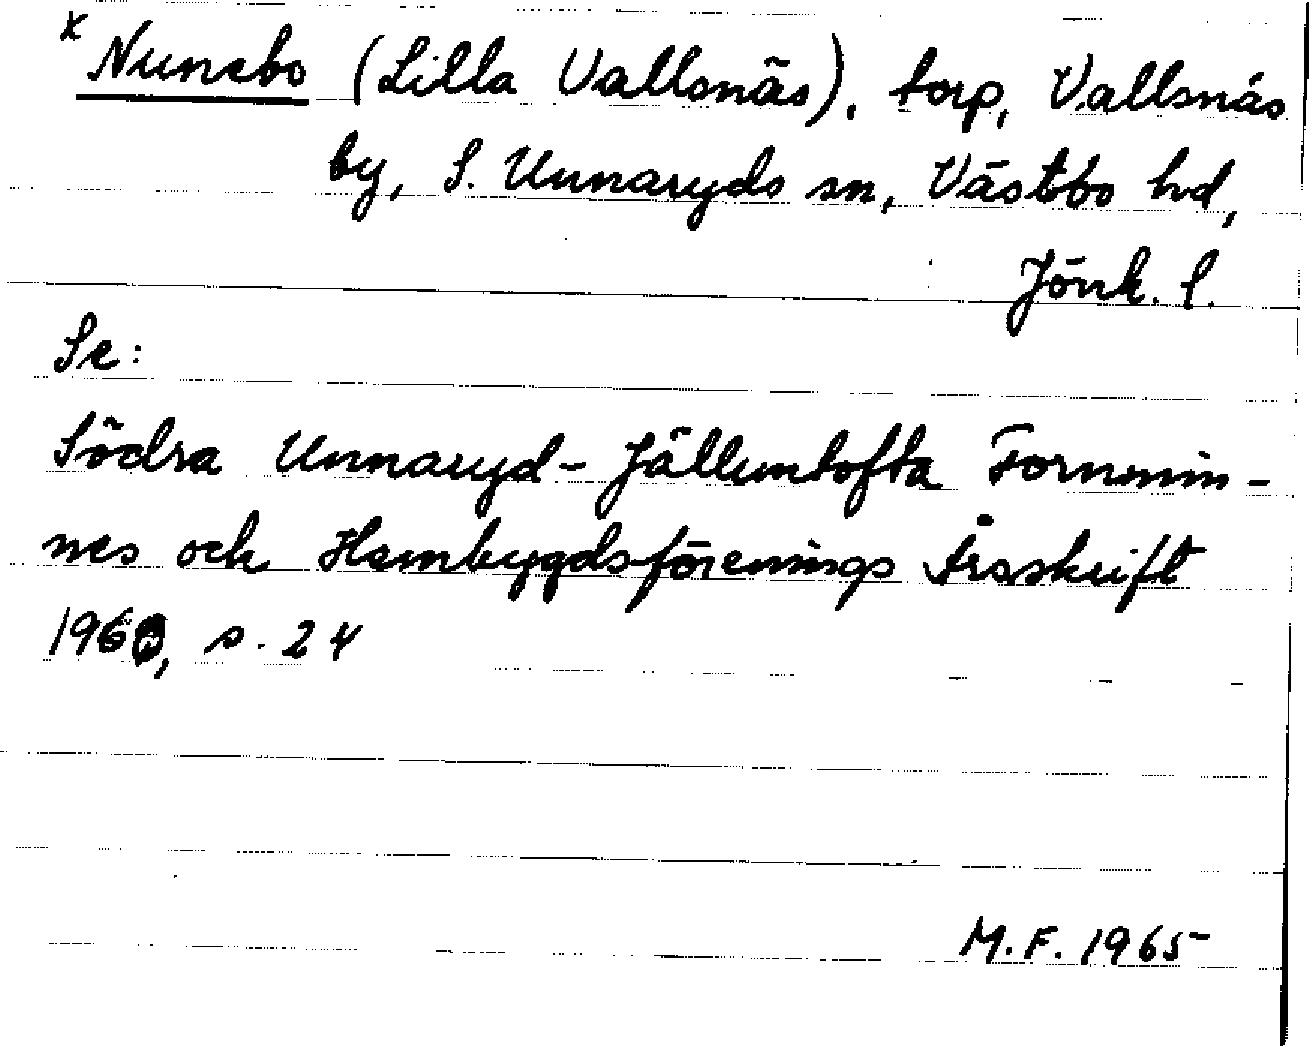 x Nunebo (Lilla Vallsnäs), torp, Vallsnäs
by, S. Unnaryds sn, Västbo hd,
Jönk. l.
Se:
Södra Unnaryd - Jälluntofta Fornmin-
nes och Hembygdsförenings Årsskrift
1960, s. 24
M.F. 1965